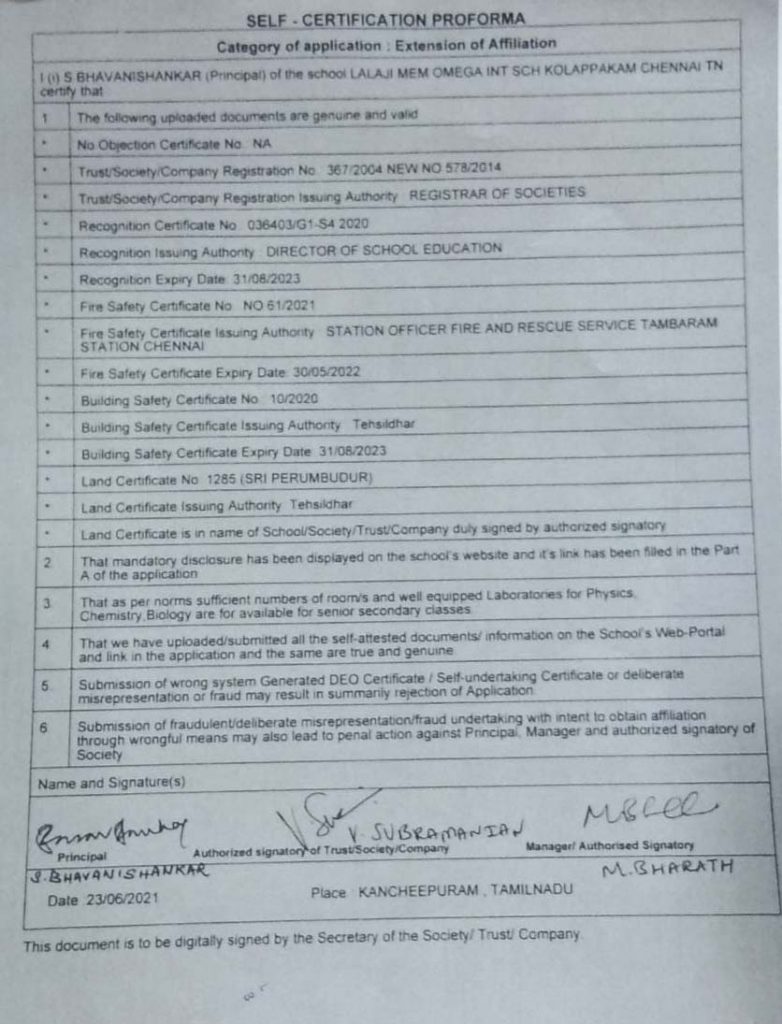 SELF - CERTIFICATION PROFORMA
Category of application : Extension of Affiliation
I (i) S BHAVANISHANKAR (Principal) of the school LALAJI MEM OMEGA INT SCH KOLAPPAKAM CHENNAI TN
certify that
1 The following uploaded documents are genuine and valid
* No Objection Certificate No. NA
* Trust/Society/Company Registration No. 367/2004 NEW NO 578/2014
* Trust/Society/Company Registration Issuing Authority REGISTRAR OF SOCIETIES
* Recognition Certificate No. 036403/G1-S4 2020
* Recognition Issuing Authority DIRECTOR OF SCHOOL EDUCATION
* Recognition Expiry Date 31/08/2023
* Fire Safety Certificate No. NO 61/2021
* Fire Safety Certificate Issuing Authority STATION OFFICER FIRE AND RESCUE SERVICE TAMBARAM
STATION CHENNAI
* Fire Safety Certificate Expiry Date 30/05/2022
* Building Safety Certificate No. 10/2020
* Building Safety Certificate Issuing Authority Tehsildhar
* Building Safety Certificate Expiry Date 31/08/2023
* Land Certificate No. 1285 (SRI PERUMBUDUR)
* Land Certificate Issuing Authority Tehsildhar
* Land Certificate is in name of School/Society/Trust/Company duly signed by authorized signatory
2 That mandatory disclosure has been displayed on the school's website and it's link has been filled in the Part
A of the application
3 That as per norms sufficient numbers of room/s and well equipped Laboratories for Physics,
Chemistry,Biology are for available for senior secondary classes.
4 That we have uploaded/submitted all the self-attested documents/ information on the School's Web-Portal
and link in the application and the same are true and genuine
5 Submission of wrong system Generated DEO Certificate / Self-undertaking Certificate or deliberate
misrepresentation or fraud may result in summarily rejection of Application
6 Submission of fraudulent/deliberate misrepresentation/fraud undertaking with intent to obtain affiliation
through wrongful means may also lead to penal action against Principal, Manager and authorized signatory of
Society
Name and Signature(s)
V. SUBRAMANIAN
Principal Authorized signatory of Trust/Society/Company Manager/ Authorised Signatory
S. BHAVANISHANKAR M. BHARATH
Date 23/06/2021 Place KANCHEEPURAM , TAMILNADU
This document is to be digitally signed by the Secretary of the Society/ Trust/ Company.